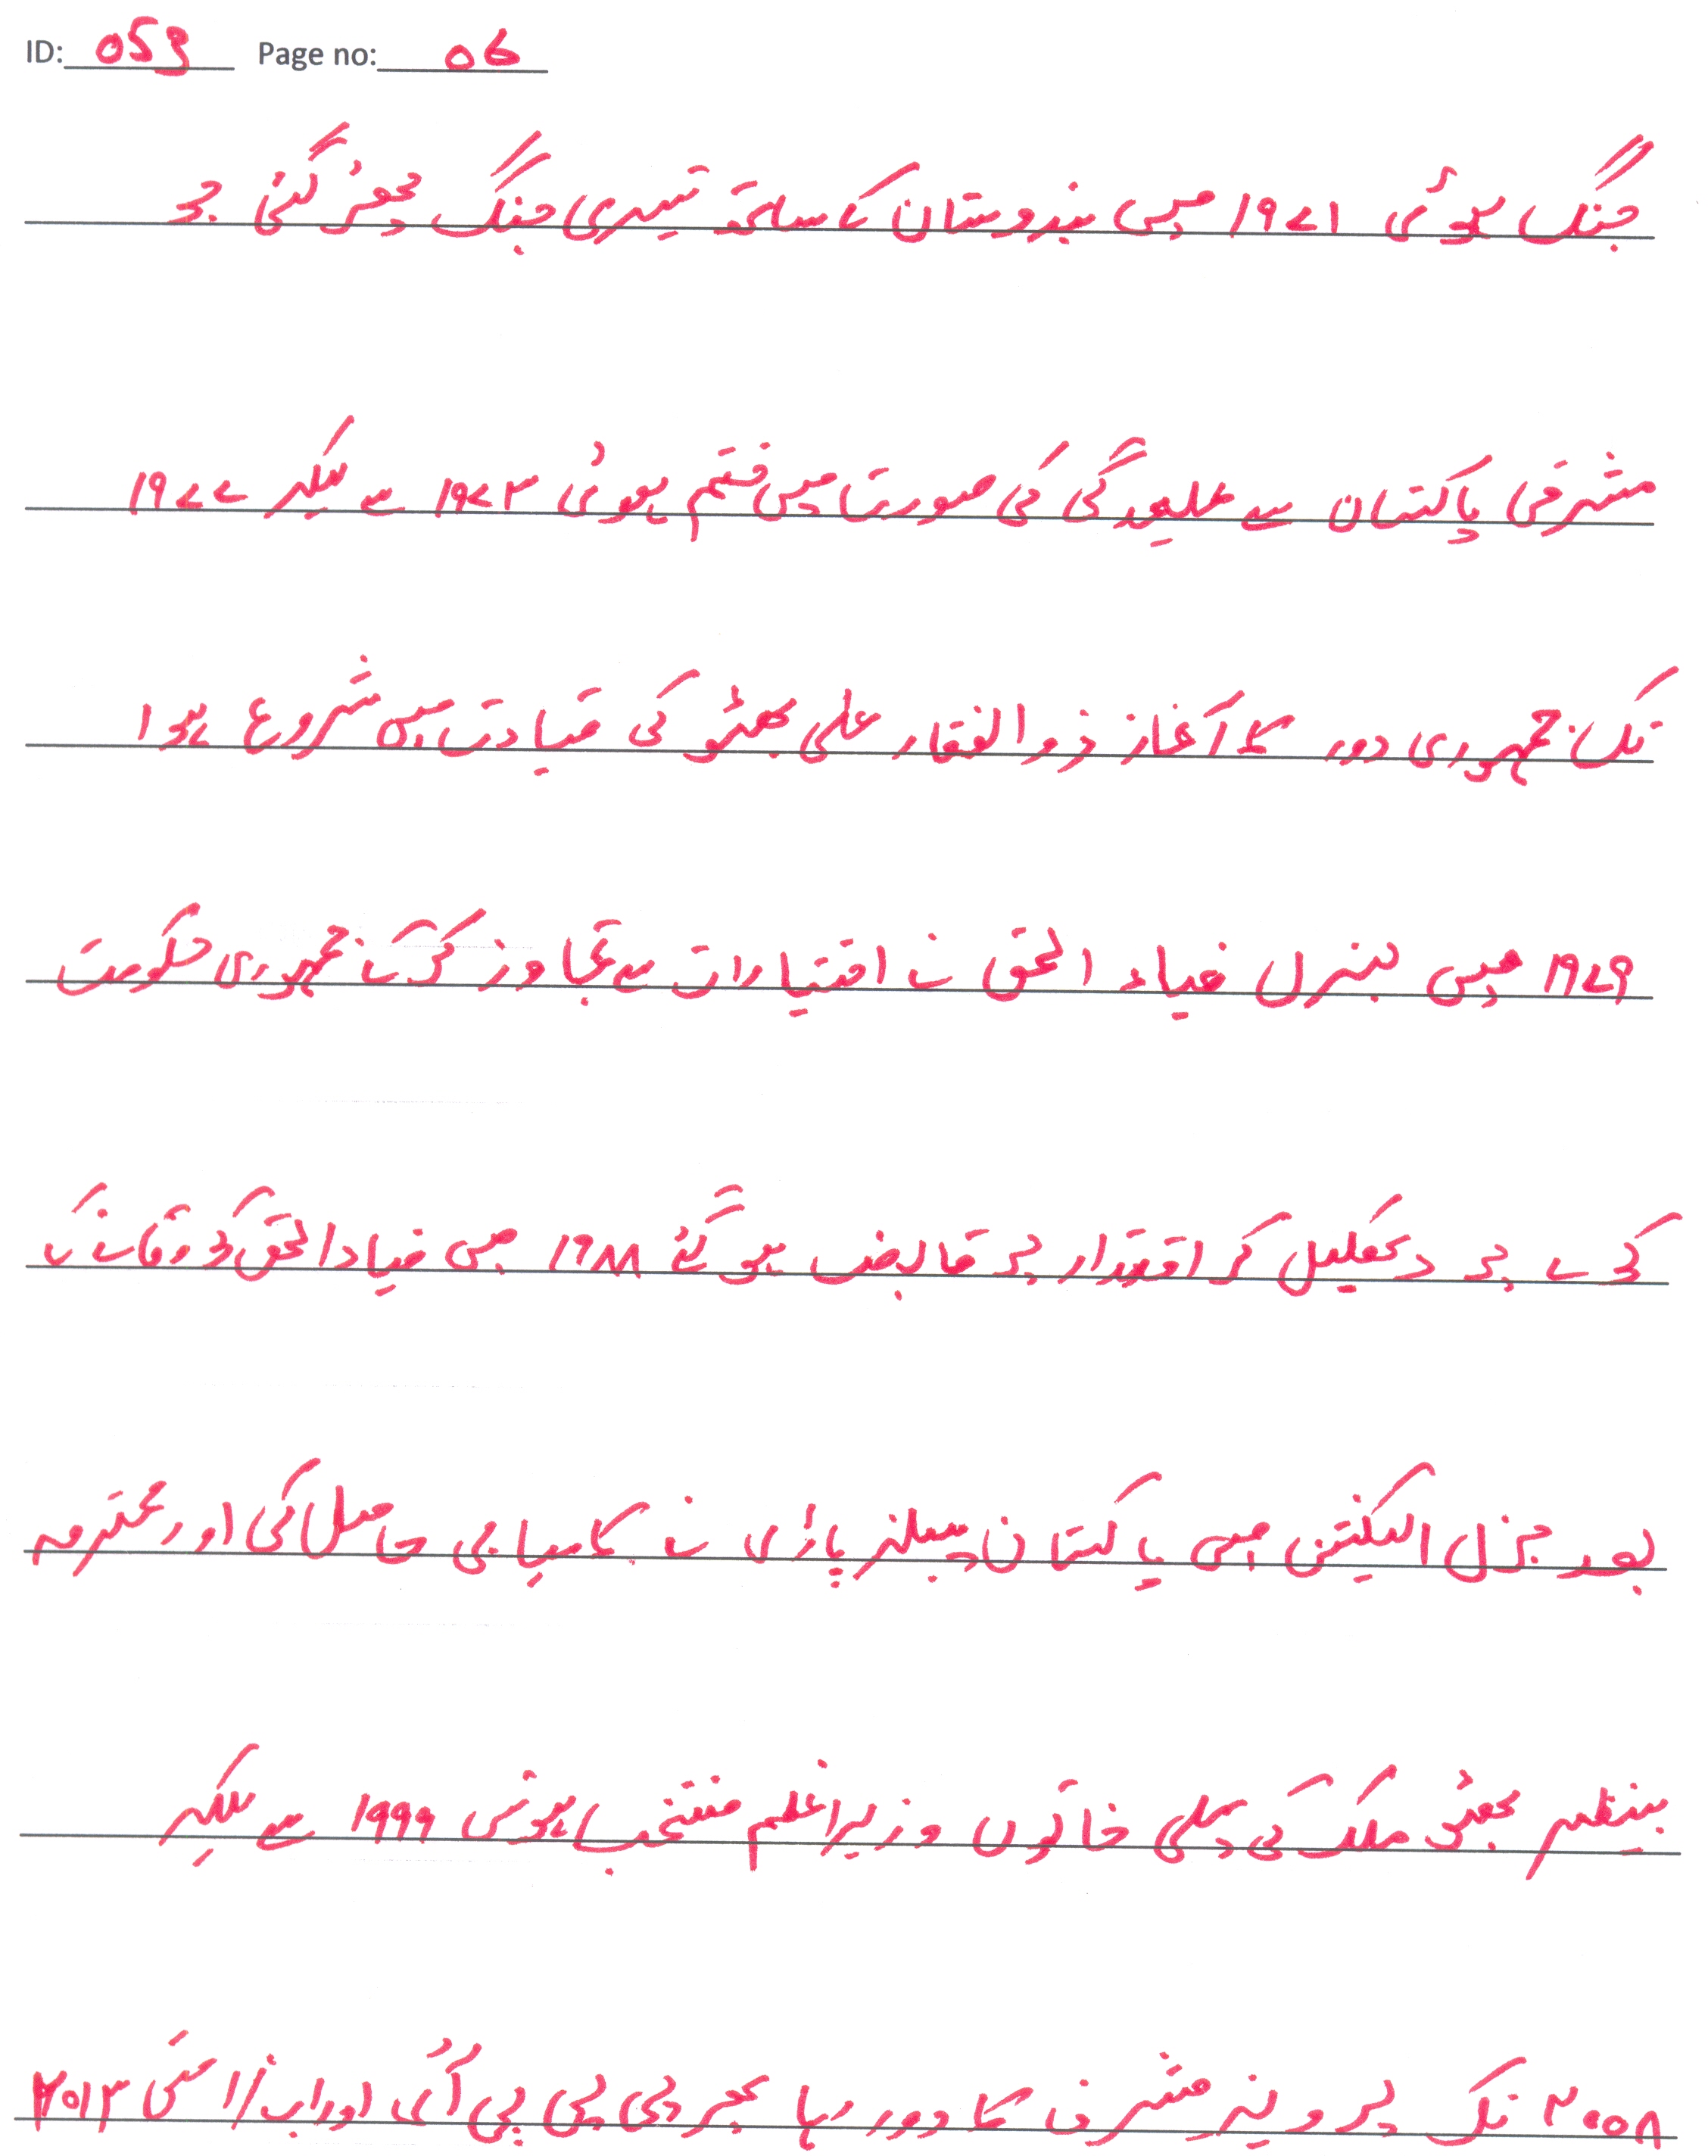 ID: 053 Page no: 06
جنگ ہوئی ۱۹۷۱ میں ہندوستان کے ساتھ تیسری جنگ چھڑ گئی جو
مشرقی پاکستان سے علیحدگی کی صورت میں ختم ہوئی ۱۹۷۳ سے لیکر ۱۹۷۷
تک جمہوری دور کا آغاز ذوالفقار علی بھٹو کی قیادت میں شروع ہوا
۱۹۷۹ میں جنرل ضیاء الحق نے اختیارات سے تجاوز کر کے جمہوری حکومت
کو دھکیل کر اقتدار پر قابض ہو گئے ۱۹۸۸ میں ضیاء الحق کو وفات کے
بعد جنرل الیکشن میں پاکستان پیپلز پارٹی نے کامیابی حاصل کی اور محترمہ
بینظیر بھٹو ملک کی پہلی خاتون وزیراعظم منتخب ہوئیں ۱۹۹۹ سے لیکر
۲۰۰۸ تک پرویز مشرف کا دور رہا پھر پی پی آئی اور اب ۱۱ مئی ۲۰۱۳